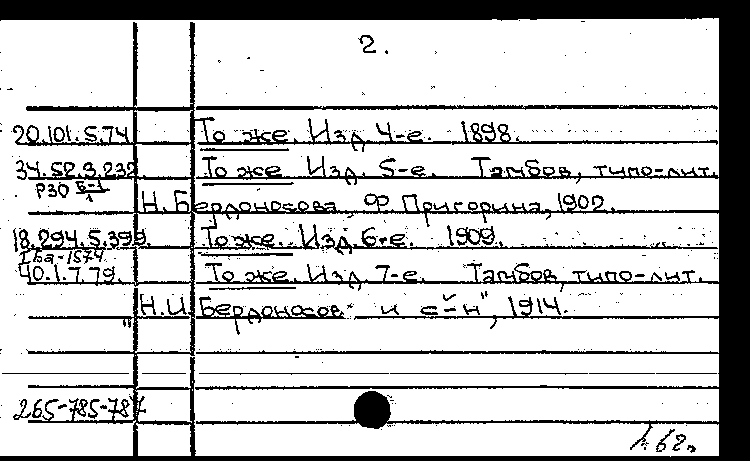 2.
20.101.5.74 То же. Изд. 4-е. 1898.
34.52.3.232. То же. Изд. 5-е. Тамбов, типо-лит.
РЗО Б-1/1
Н. Бердоносова, Ф. Пригорина, 1902.
18.294.5.399. То же. Изд. 6-е. 1909.
IБа-1574
40.1.7.79. То же. Изд. 7-е. Тамбов, типо-лит.
"Н.И. Бердоносов и с-й-н", 1914.
265-785-787